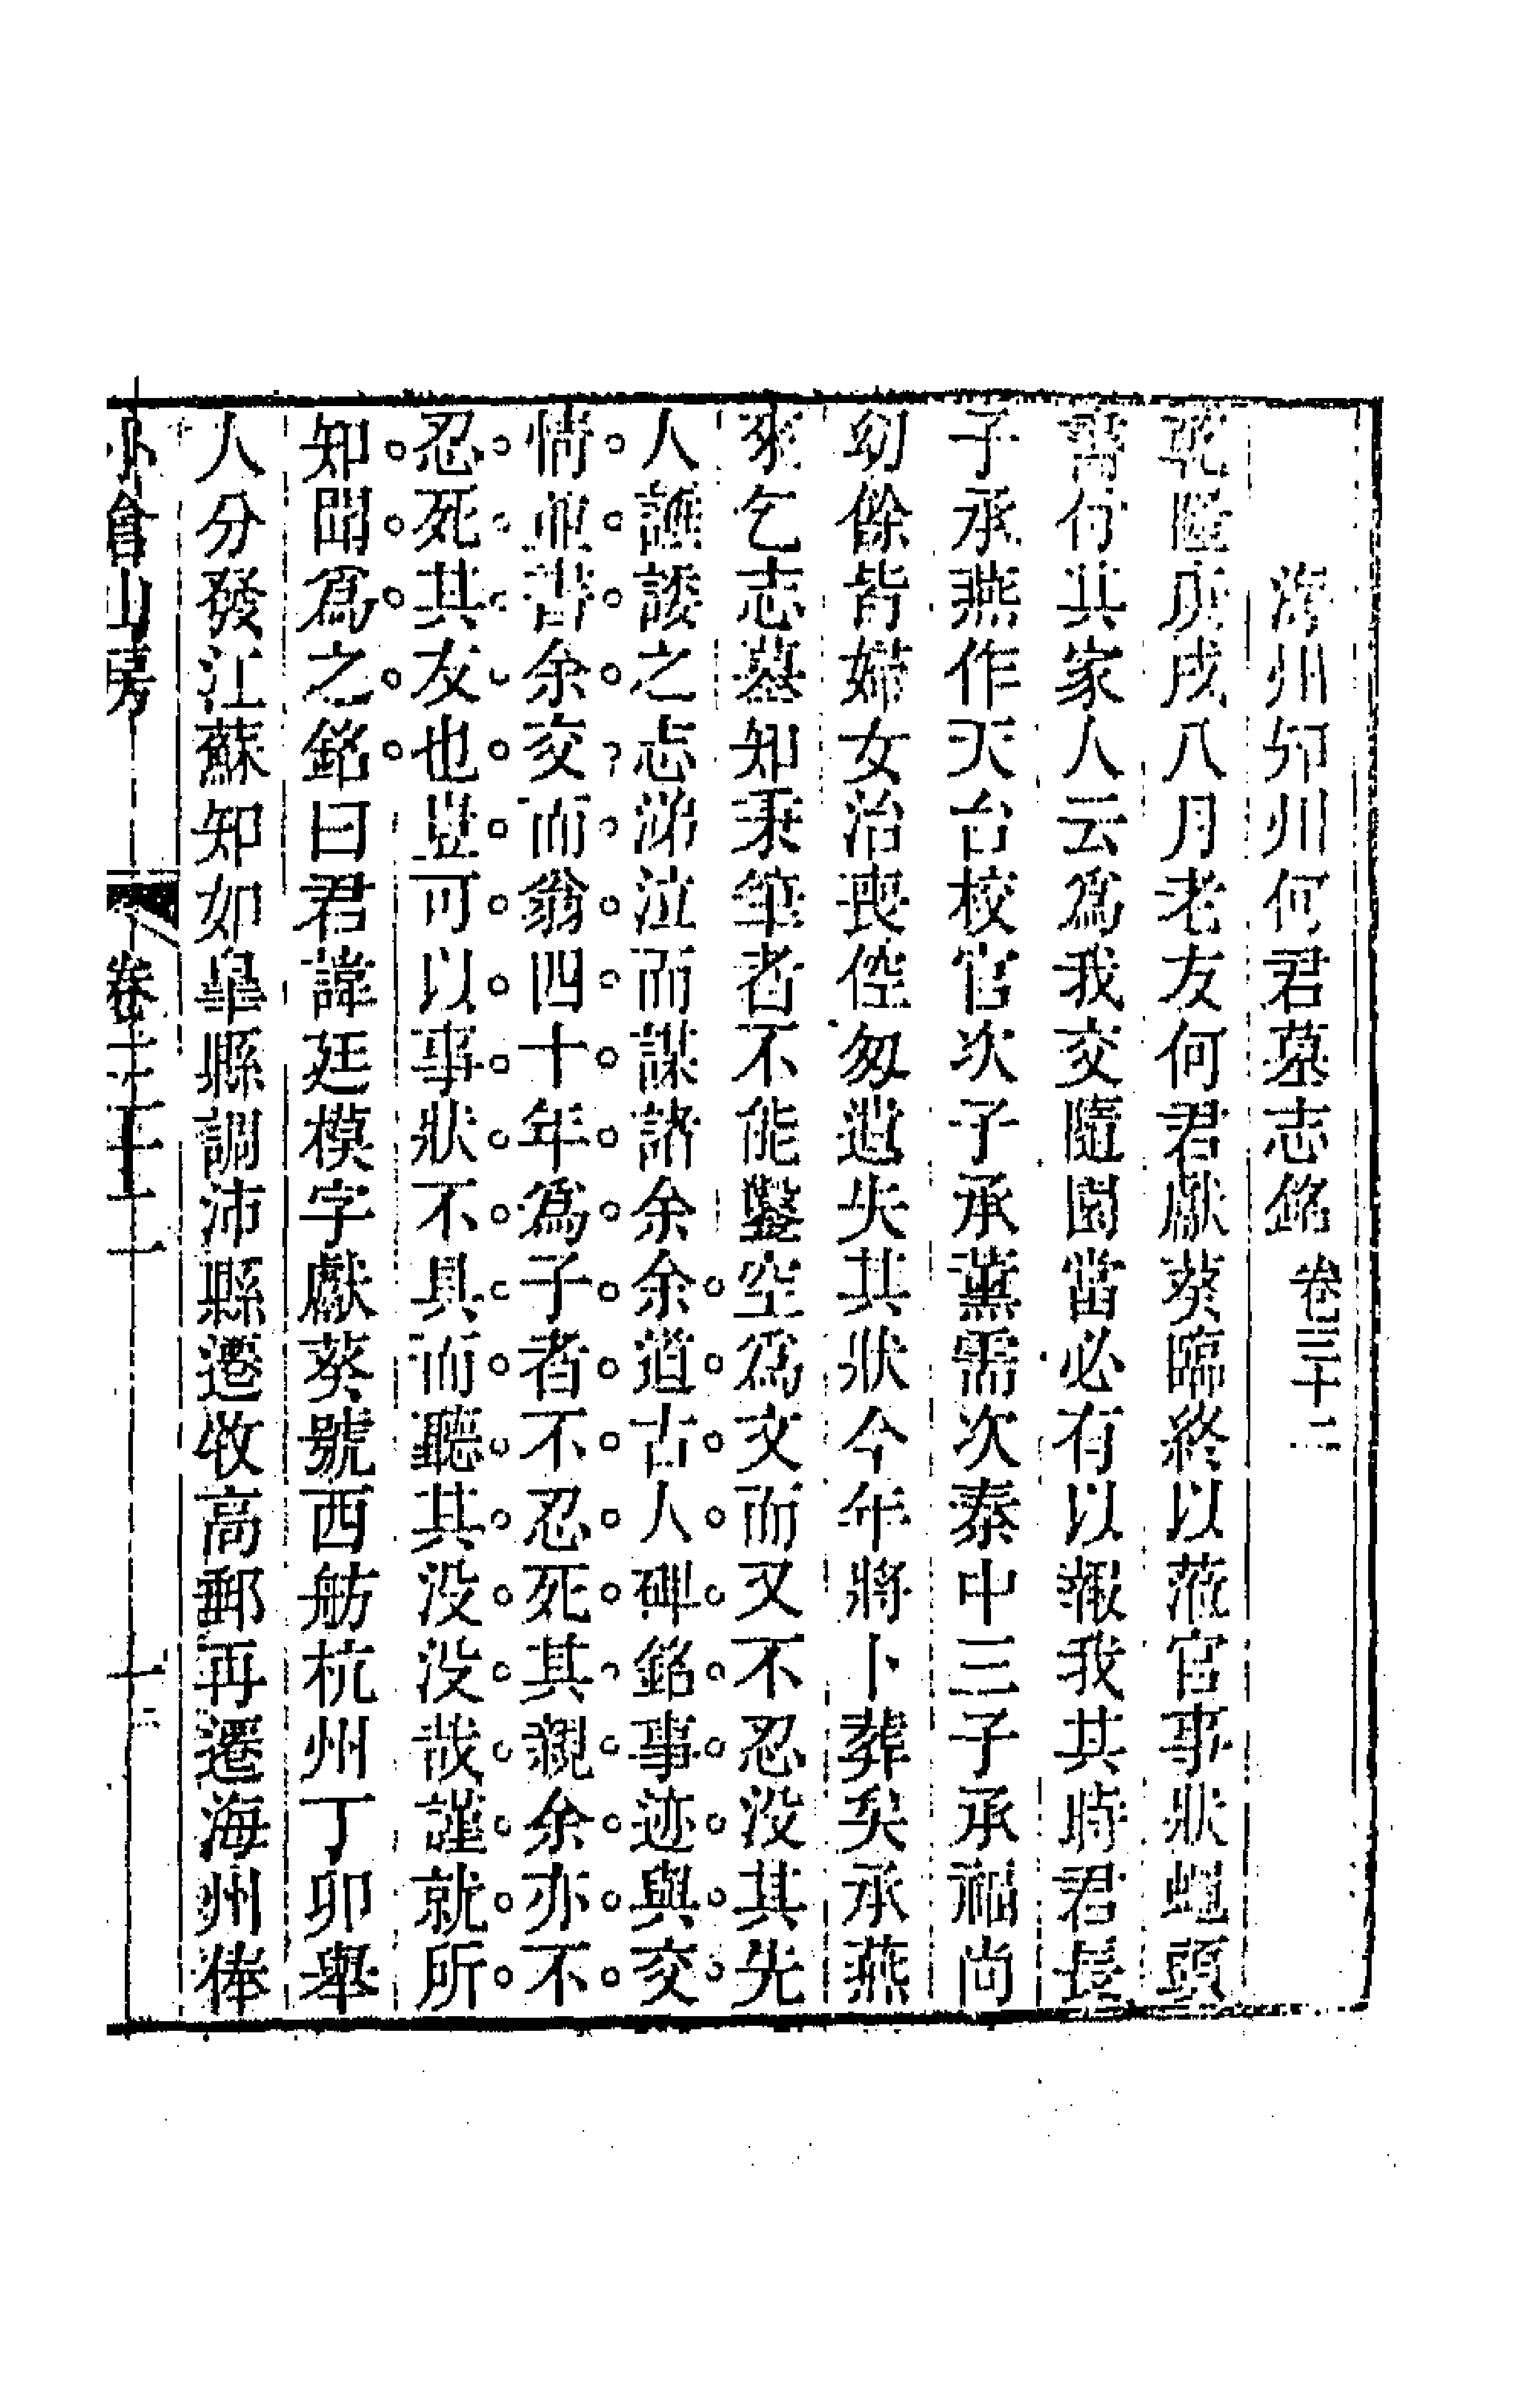 海州知州何君墓志銘 卷三十二
乾隆庚戌八月老友何君獻葵臨終以蒞官事狀蠅頭
書付其家人云爲我交隨園當必有以報我其時君長
子承燕作天台校官次子承薰需次秦中三子承福尚
幼餘皆婦女治喪倥匆遺失其狀今年將卜葬矣承燕
來乞志墓知秉筆者不能鑿空爲文而又不忍没其先
人謙諉之志涕泣而謀諸余余道古人碑銘事迹與交
情並書余交而翁四十年爲子者不忍死其親余亦不
忍死其友也豈可以事狀不具而聽其没没哉謹就所
知聞爲之銘曰君諱廷模字獻葵號西舫杭州丁卯舉
人分發江蘇知如臯縣調沛縣遷牧高郵再遷海州俸
小倉山房 卷三十二 十二